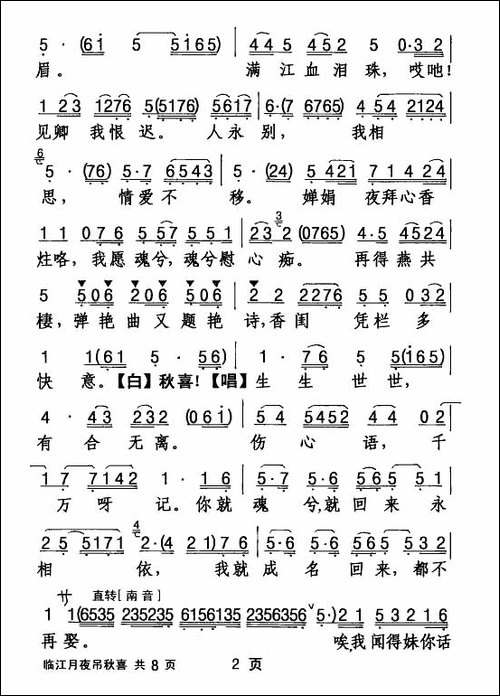 5·(6i 5 5i65) | 445 452 5 0·32 |
眉。 满江血泪珠，哎吔！
123 1276 5(5176) 5617 | 6·(7 6765) 4 54 2124 |
见卿我恨迟。 人永别， 我相
5·(76) 5·7 6543 | 5·(24) 5 421 7 1 4 2 4 |
思， 情爱不移。 婵娟 夜拜心香
1 1 076 571 51 | 23 2 (0765) 4·5 4524 |
炷咯，我愿魂兮，魂兮慰心痴。 再得燕共
5 506 206 506 | 2 2 2276 5 5 032 |
棲，弹艳曲又题艳诗，香闺 凭栏多
1 1(61 5· 56) | 1· 76 5 5(i65) |
快意。【白】秋喜！【唱】生生世世，
4· 43 232 (06i) | 54 5452 44 02 |
有合无离。 伤心语，千
17 7142 1· 16 | 5·7 65 565 51 |
万呀记。你就魂兮，就回来永
25 5171 2·(4 21)76 | 5·5 35 66 51 |
相依， 我就成名回来，都不
サ 直转［南音］
1 1(6535 235235 6156135 2356356 5) 21· 5 3216
再娶。 唉，我闻得妹你话
临江月夜吊秋喜 共 8 页 2 页